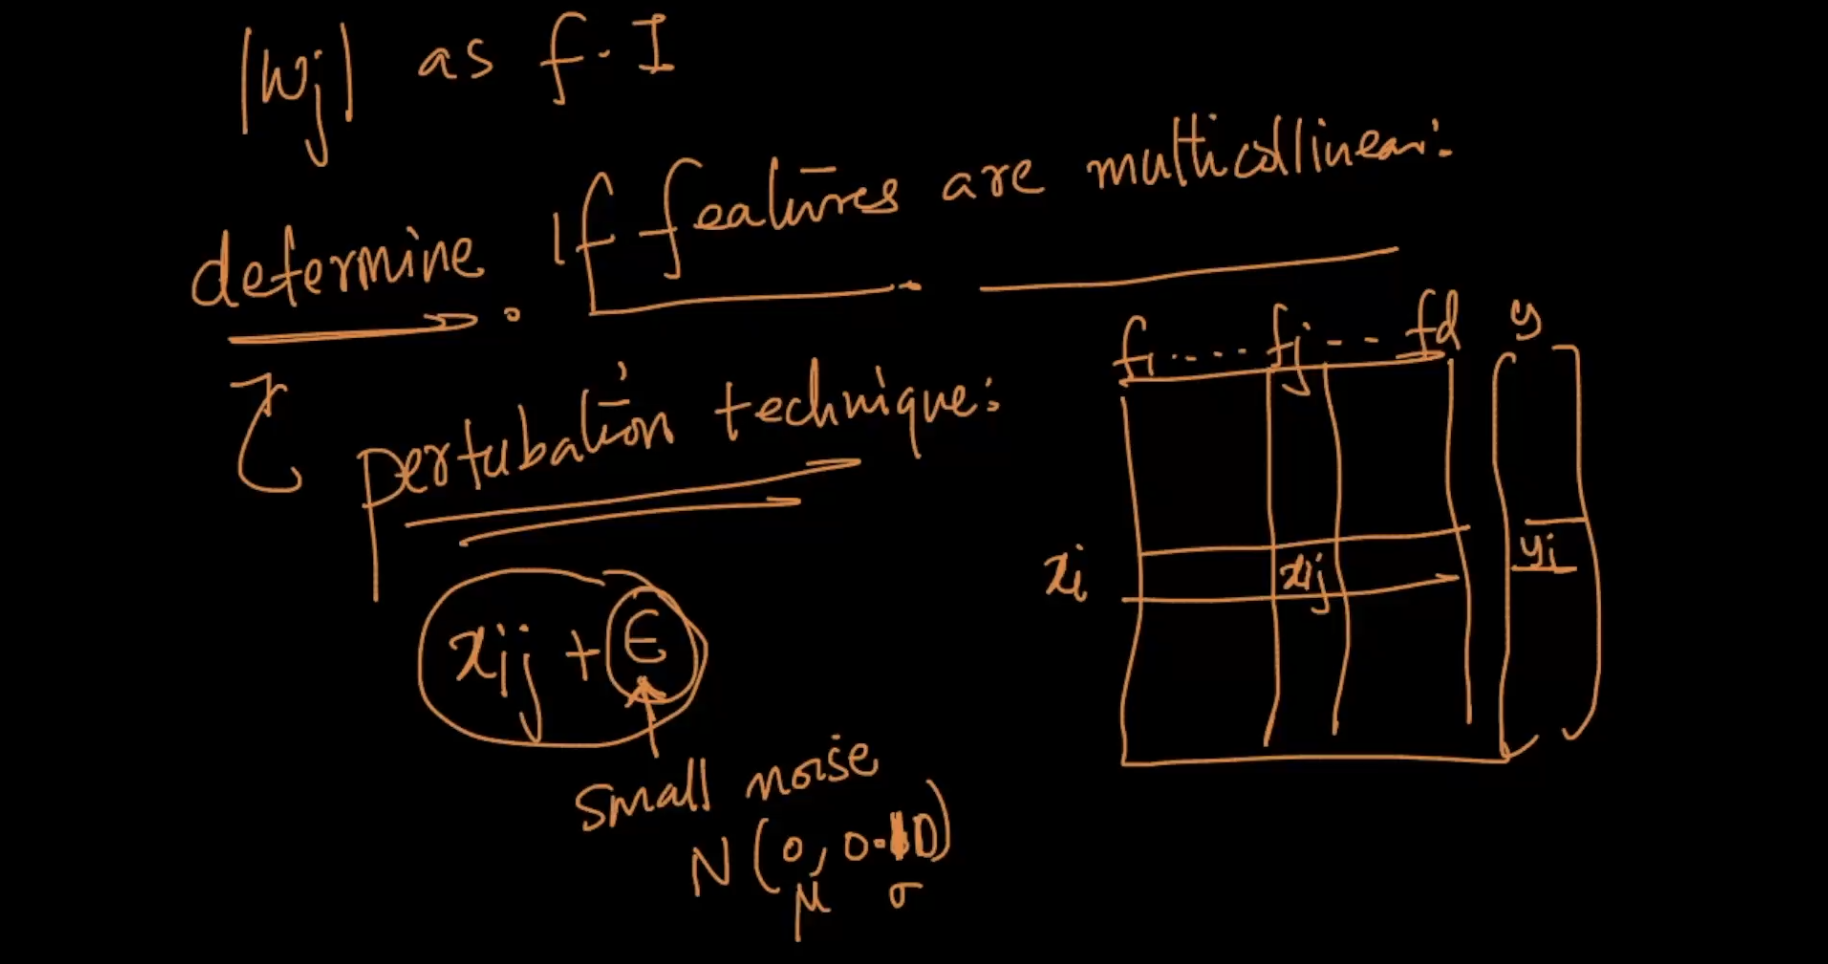 |wj| as f.I
determine if features are multicollinear:
pertubation technique:
xij + ϵ
small noise
N(0, 0.10)
μ σ
f1 .... fj -- fd y
xi xij yi